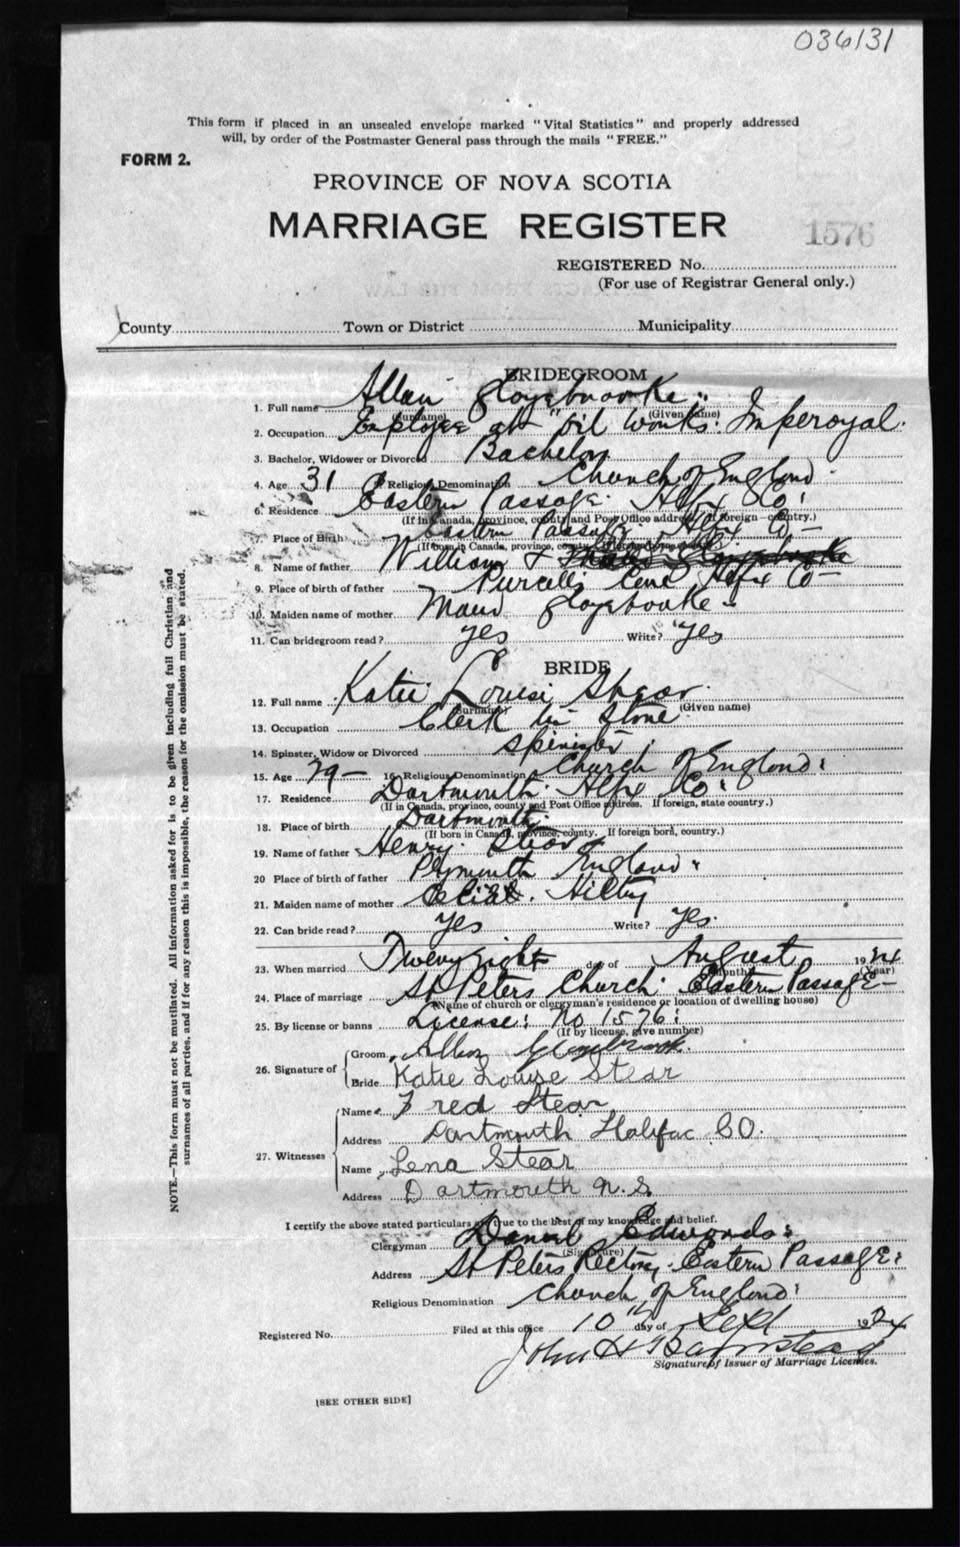 036131
This form if placed in an unsealed envelope marked "Vital Statistics" and properly addressed
will, by order of the Postmaster General pass through the mails "FREE."
FORM 2.
PROVINCE OF NOVA SCOTIA
MARRIAGE REGISTER
1576
REGISTERED No.
(For use of Registrar General only.)
County Town or District Municipality
BRIDEGROOM
1. Full name Allan
(Surname) (Given name)
2. Occupation Employee at "oil works. Imperoyal.
3. Bachelor, Widower or Divorced Bachelor
4. Age 31 Religious Denomination Church of England
6. Residence Eastern Passage. Hfx Co.
(If in Canada, province, county and Post Office address. If foreign country.)
7. Place of Birth Eastern Passage Hfx Co
(If born in Canada, province, county.
8. Name of father William
9. Place of birth of father Purcells Cove Hfx Co
10. Maiden name of mother Maud
11. Can bridegroom read? yes Write? Yes
BRIDE
12. Full name Katie Louise Stear
(Surname) (Given name)
13. Occupation Clerk in Store
14. Spinster, Widow or Divorced Spinster
15. Age 29 16 Religious Denomination Church of England
17. Residence Dartmouth. Hfx Co.
(If in Canada, province, county and Post Office address. If foreign, state country.)
18. Place of birth Dartmouth.
(If born in Canada, province, county. If foreign born, country.)
19. Name of father Henry. Stear
20 Place of birth of father Plymouth England
21. Maiden name of mother Hilty
22. Can bride read? yes Write? yes.
23. When married day of August 1924
(Month) (Year)
24. Place of marriage St Peters Church. Eastern Passage
(Name of church or clergyman's residence or location of dwelling house)
25. By license or banns License: No 1576:
(If by license, give number)
26. Signature of
Groom Allan
Bride Katie Louise Stear
27. Witnesses
Name Fred Stear
Address Dartmouth Halifax CO.
Name Lena Stear
Address Dartmouth N.S.
I certify the above stated particulars are true to the best of my knowledge and belief.
Clergyman Daniel Edwards
(Signature)
Address St Peters Rectory. Eastern Passage
Religious Denomination Church of England
Registered No. Filed at this office 10th day of Sept 1924
John H
Signature of Issuer of Marriage Licenses.
[SEE OTHER SIDE]
NOTE.—This form must not be mutilated. All information asked for is to be given including full Christian and
surnames of all parties, and if for any reason this is impossible, the reason for the omission must be stated.